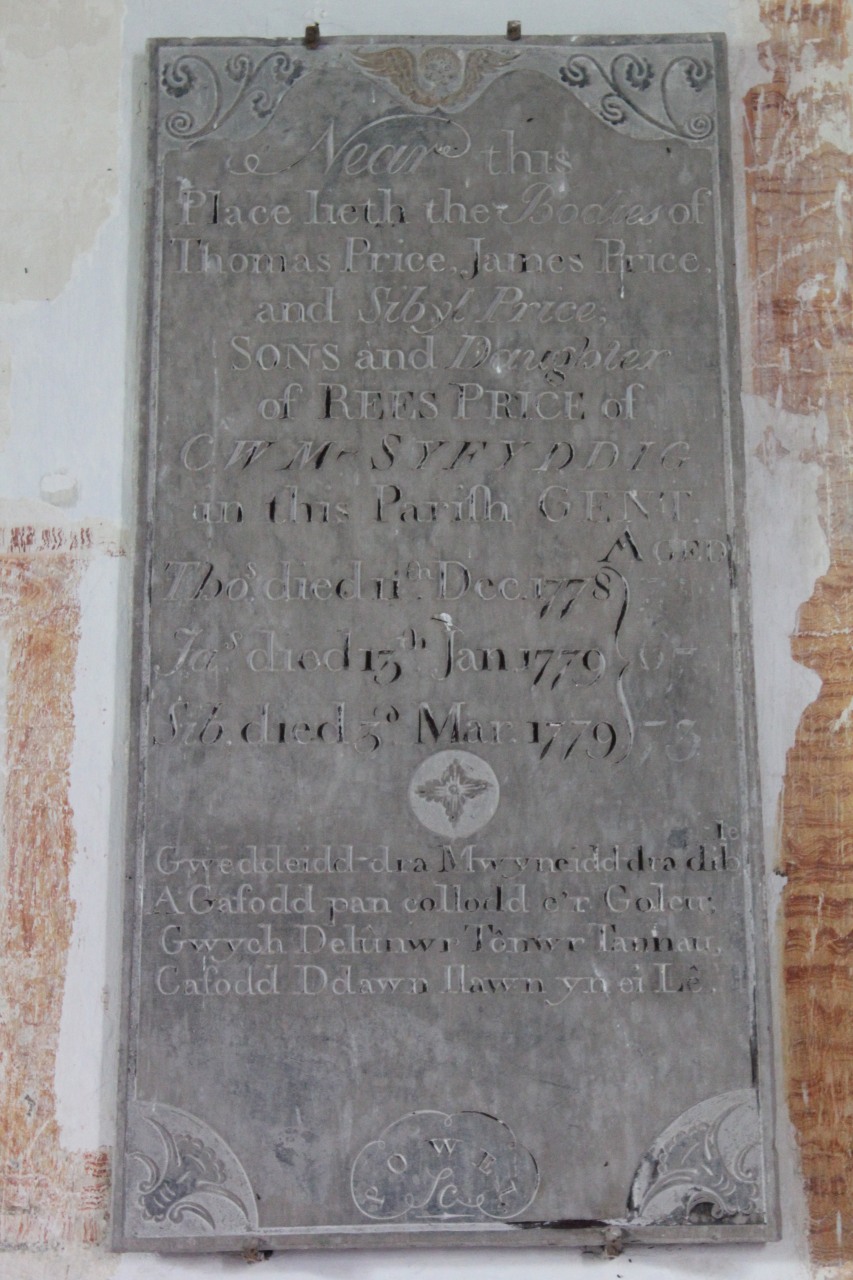 Near this
Place lieth the Bodies of
Thomas Price, James Price,
and Sibyl Price;
SONS and Daughter
of REES PRICE of
CWM-SYFYDDIG
in this Pariſh GENT.
AGED
Thoˢ. died 11ᵗʰ. Dec. 1778
Jaˢ died 13ᵗʰ Jan. 1779 67
Sib. died 3ᵈ Mar. 1779 73
Gweddeidd-dra Mwyneidd dra dible
A Gafodd pan collodd e'r Goleu;
Gwych Delûnwr Tônwr Tannau,
Cafodd Ddawn llawn yn ei Lê.
POWELL
Sc